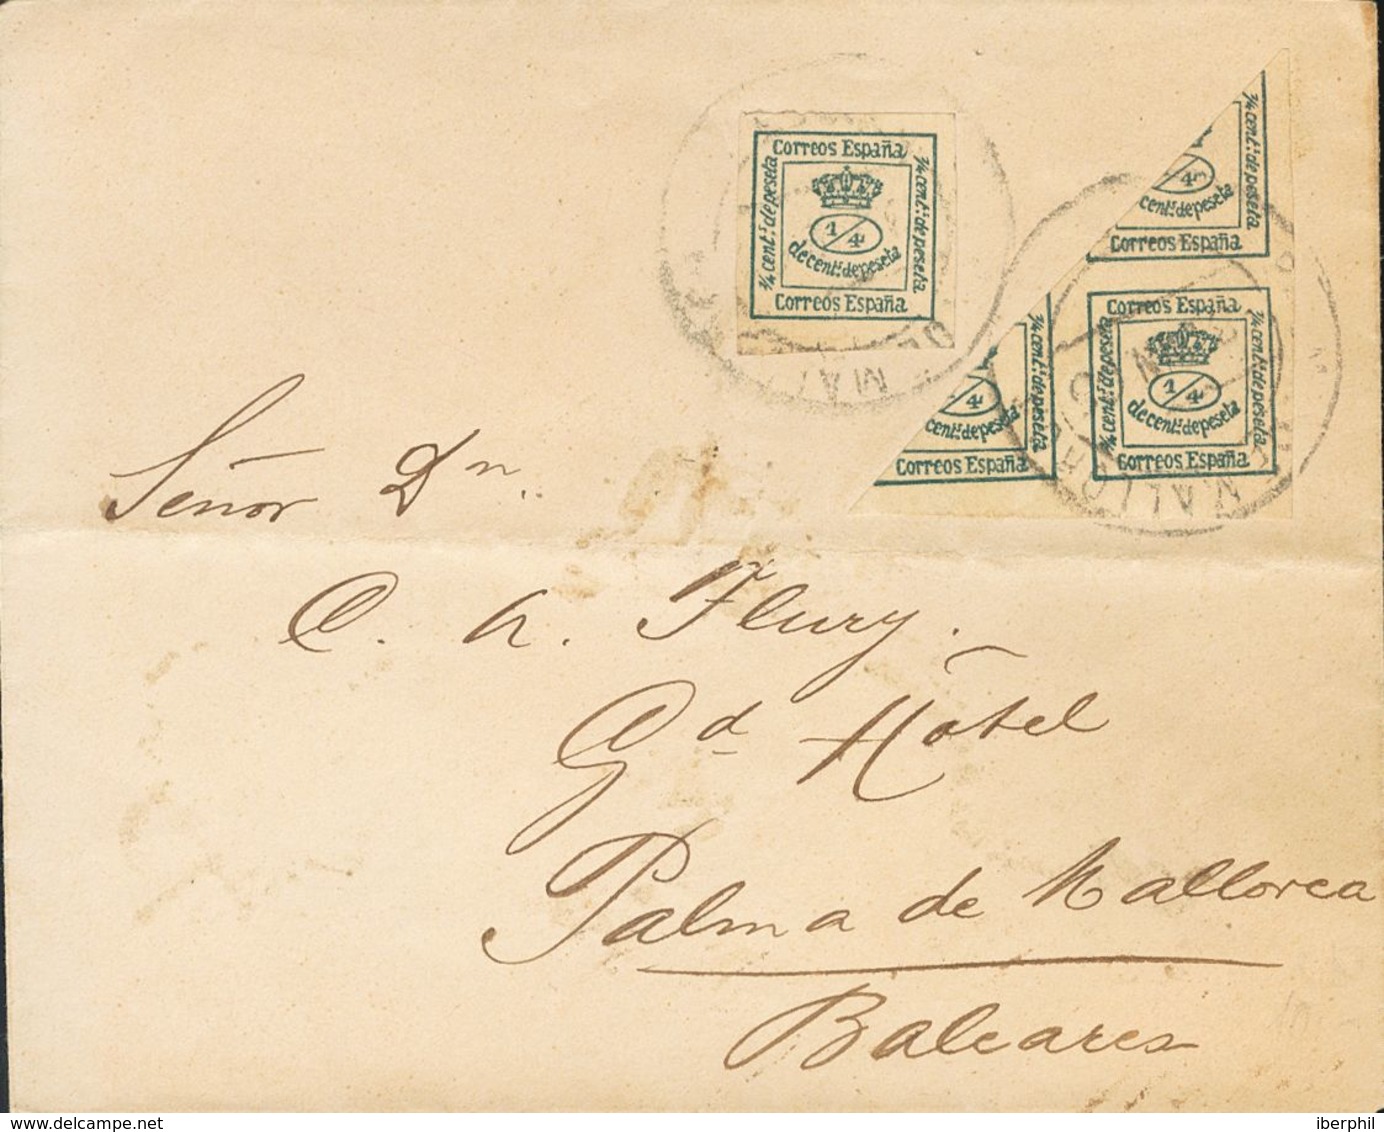 Correos España
¼ cent.s de peseta
¼ cent.s de peseta
1/4
de cent.s de peseta
Correos España
¼ cent.s de peseta
1/4
cent.s de peseta
Correos España
¼ cent.s de peseta
1/4
cent.s de peseta
Correos España
Correos España
¼ cent.s de peseta
¼ cent.s de peseta
1/4
de cent.s de peseta
Correos España
Señor Dn.
C. A. Flury.
Gd Hôtel
Palma de Mallorca
Baleares
delcampe.net
iberphil